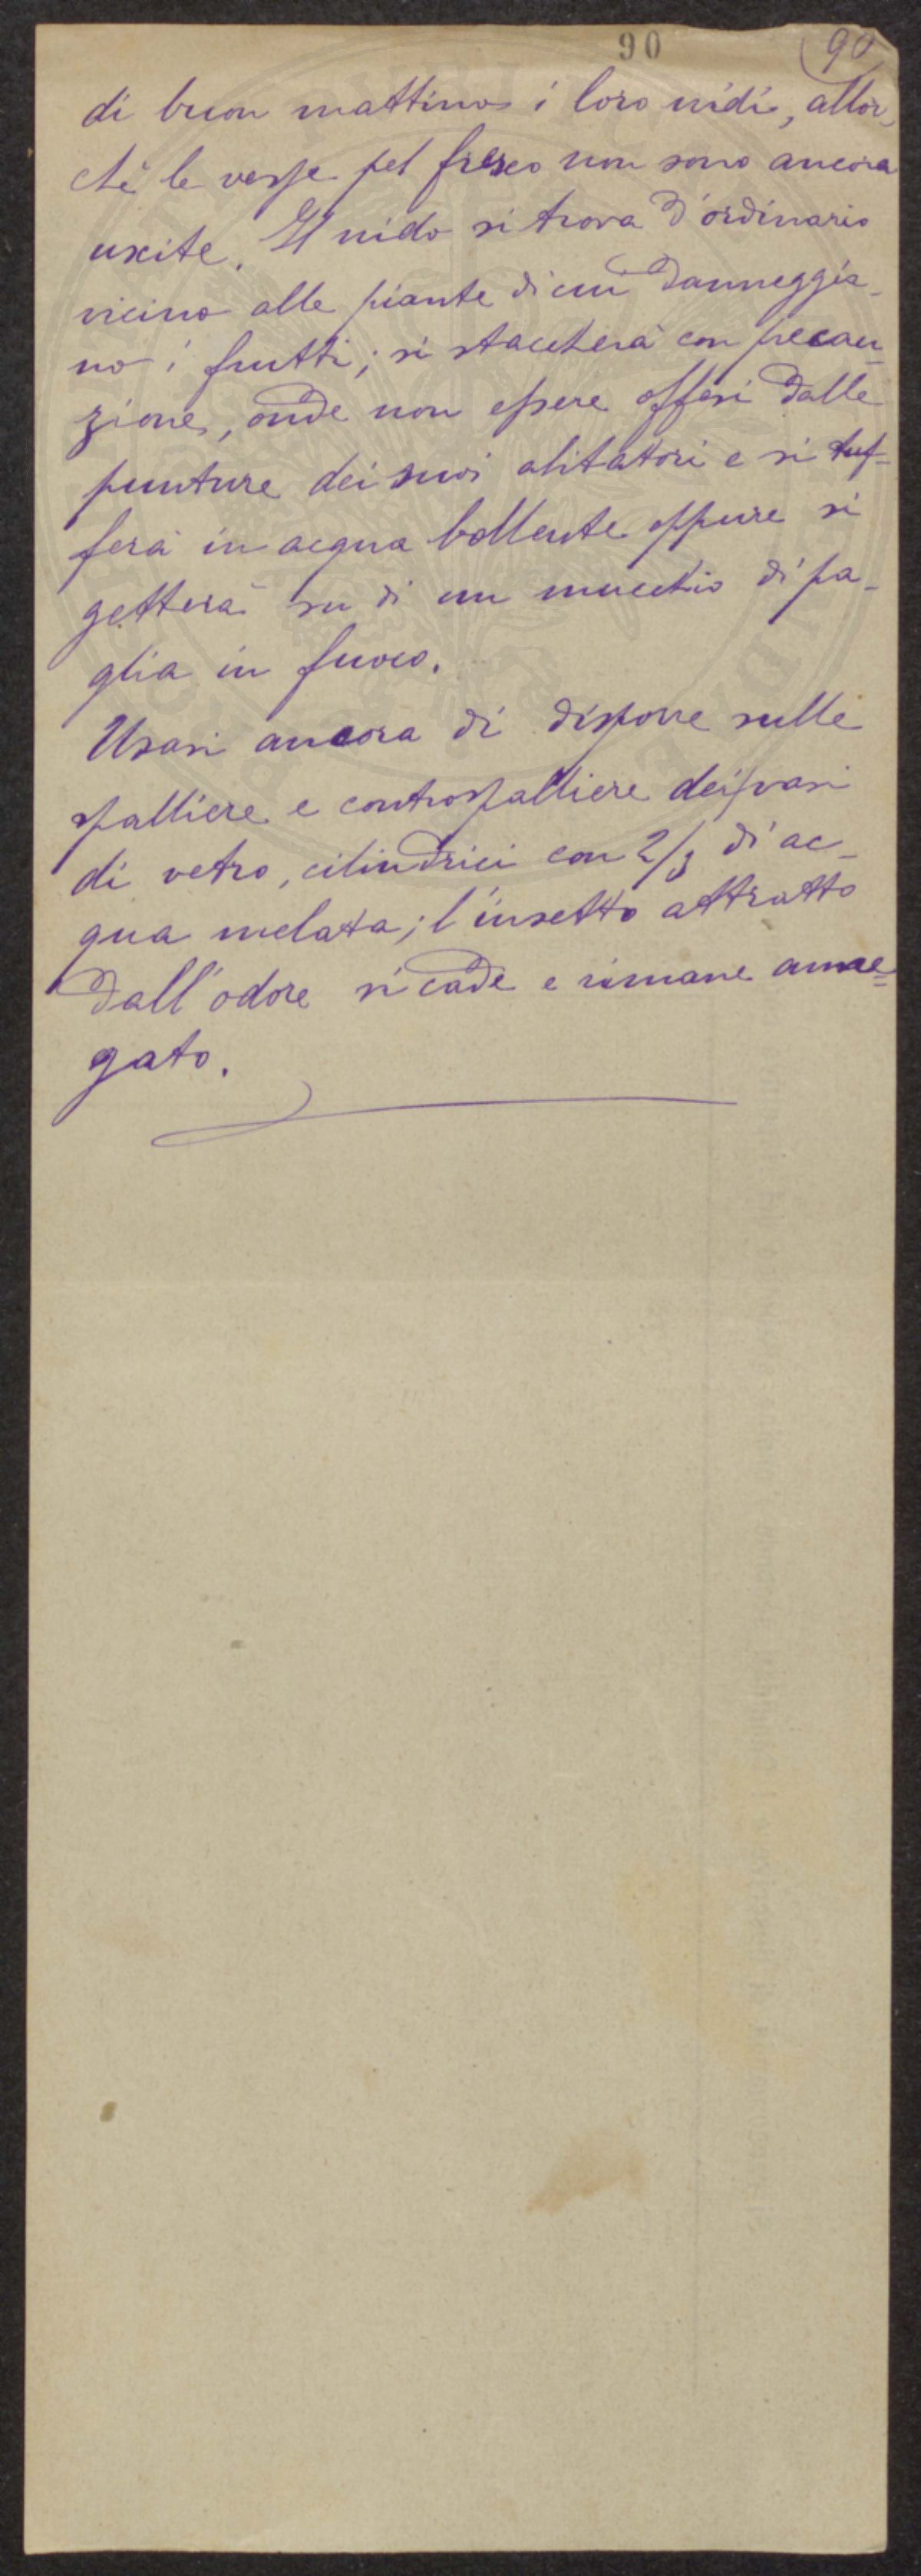 90
90
di buon mattino i loro nidi, allor
chè le vespe pel fresco non sono ancora
uscite. Il nido si trova d'ordinario
vicino alle piante di cui danneggia-
no i frutti; si staccherà con precau-
zione, onde non essere offesi dalle
punture dei suoi abitatori e si tuf-
ferà in acqua bollente oppure si
getterà su di un mucchio di pa-
glia in fuoco.
Usasi ancora di disporre sulle
spalliere e controspalliere dei vasi
di vetro, cilindrici con 2/3 di ac-
qua melata; l'insetto attratto
dall'odore vi cade e rimane anne-
gato.